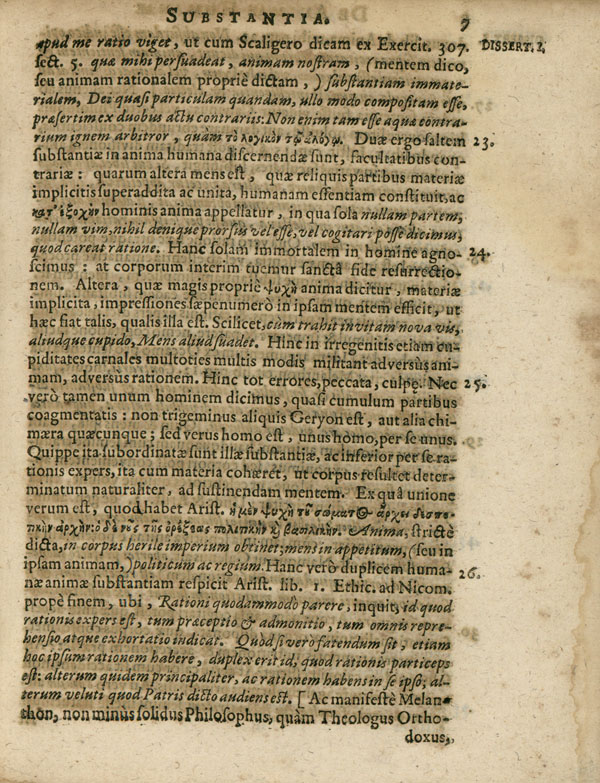 SUBSTANTIA. 7
apud me ratio viget, ut cum Scaligero dicam ex Exercit. 307. DISSERT. 2.
sect. 5. quæ mihi persuadeat, animam nostram, (mentem dico,
seu animam rationalem propriè dictam,) substantiam immate-
rialem, Dei quasi particulam quandam, ullo modo compositam esse,
præsertim ex duobus actu contrariis: Non enim tam esse aquæ contra-
rium ignem arbitror, quàm τὸ λογικὸν τῷ ἀλόγῳ. Duæ ergo saltem 23.
substantiæ in anima humana discernendæ sunt, facultatibus con-
trariæ: quarum altera mens est, quæ reliquis partibus materiæ
implicitis superaddita ac unita, humanam essentiam constituit, ac
κατ' ἐξοχὴν hominis anima appellatur, in qua sola nullam partem,
nullam vim, nihil denique prorsus vel esse, vel cogitari posse dicimus,
quod careat ratione. Hanc solam immortalem in homine agno- 24.
scimus: at corporum interim tuemur sanctâ fide resurrectio-
nem. Altera, quæ magis propriè ψυχὴ anima dicitur, materiæ
implicita, impressiones sæpenumerò in ipsam mentem efficit, ut
hæc fiat talis, qualis illa est. Scilicet, cum trahit invitam nova vis,
aliudque cupido, Mens aliud suadet. Hinc in irregenitis etiam cu-
piditates carnales multoties multis modis militant adversùs ani-
mam, adversùs rationem. Hinc tot errores, peccata, culpę. Nec 25.
verò tamen unum hominem dicimus, quasi cumulum partibus
coagmentatis: non trigeminus aliquis Geryon est, aut alia chi-
mæra quæcunque; sed verus homo est, unus homo, per se unus.
Quippe ita subordinatæ sunt illæ substantiæ, ac inferior per se ra-
tionis expers, ita cum materia cohæret, ut corpus resultet deter-
minatum naturaliter, ad sustinendam mentem. Ex quâ unione
verum est, quod habet Arist. ἡ μὲν ψυχὴ τοῦ σώματος ἄρχει δεσπο-
τικὴν ἀρχὴν: ὁ δὲ νοῦς τῆς ὀρέξεως πολιτικὴν ἢ βασιλικήν. Anima, strictè
dicta, in corpus herile imperium obtinet; mens in appetitum, (seu in
ipsam animam,) politicum ac regium. Hanc verò duplicem huma- 26.
næ animæ substantiam respicit Arist. lib. 1. Ethic. ad Nicom.
propè finem, ubi, Rationi quodammodò parere, inquit, id quod
rationis expers est, tum præceptio & admonitio, tum omnis repre-
hensio atque exhortatio indicat. Quòd si vero fatendum sit, etiam
hoc ipsum rationem habere, duplex erit id, quod rationis particeps
est: alterum quidem principaliter, ac rationem habens in se ipso; al-
terum veluti quod Patris dicto audiens est. [Ac manifestè Melan-
thon, non minùs solidus Philosophus, quàm Theologus Ortho-
doxus,